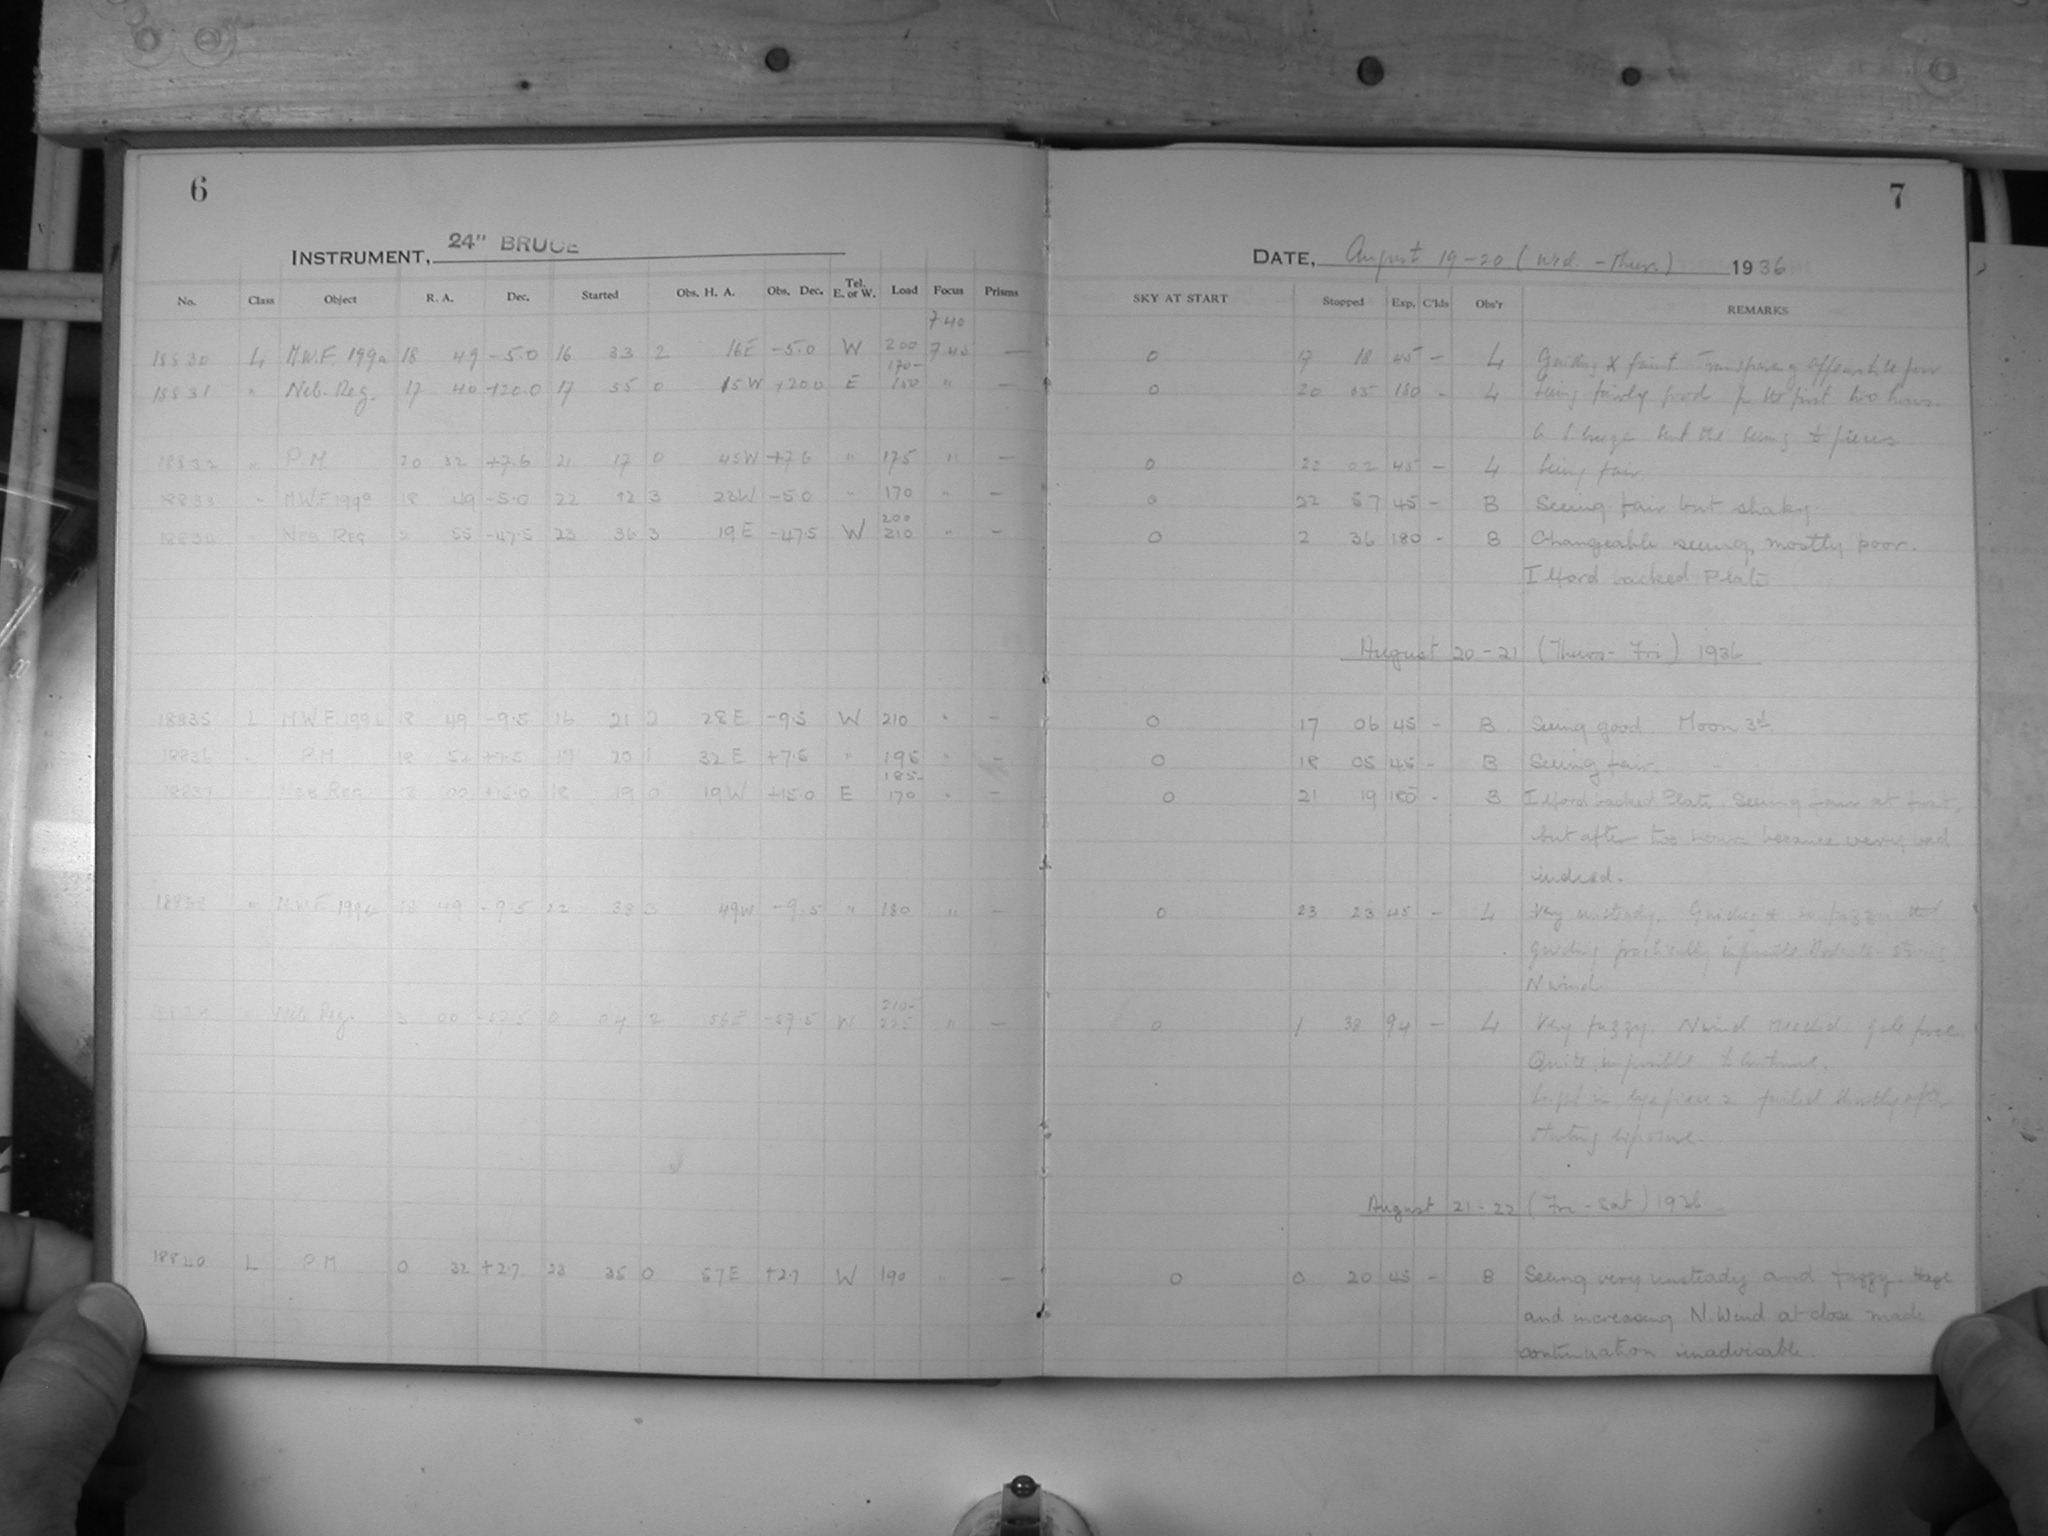 6
INSTRUMENT, 24" BRUCE
No. Class Object R. A. Dec. Started Obs. H. A. Obs. Dec. Tel. E. or W. Load Focus Prisms
7.40
18830 L M.W.F. 199a 18 49 -5.0 16 33 2 16E -5.0 W 200 7.45 —
170-
18831 " Neb. Reg. 17 40 +20.0 17 55 0 15W +20.0 E 150 " —
18832 " P.M 20 32 +7.6 21 17 0 45W +7.6 " 175 " —
18833 " M.W.F 199a 18 49 -5.0 22 12 3 23W -5.0 " 170 " —
200
18834 " NEB REG 2 55 -47.5 23 36 3 19E -47.5 W 210 " —
18835 L M.W.F. 199b 18 49 -9.5 16 21 2 28E -9.5 W 210 " —
18836 " P.M 18 52 +7.5 17 20 1 32E +7.6 " 195 " —
185-
18837 " Neb Reg 18 00 +15.0 18 19 0 19W +15.0 E 170 " —
18838 " M.W.F. 199b 18 49 -9.5 22 38 3 49W -9.5 " 180 " —
210-
18839 " Neb. Reg. 3 00 -57.5 0 04 2 56E -57.5 W 225 " —
18840 L P M 0 32 +2.7 23 35 0 57E +2.7 W 190 " —
7
DATE, August 19-20 (Wed. - Thur.) 1936
SKY AT START Stopped Exp. C'lds Obs'r REMARKS
0 17 18 45 – L Guiding * faint Transparency poor
0 20 55 180 - L Seeing fairly good for the first two hours.
but the seeing to pieces
0 22 02 45 – L Seeing fair.
0 22 57 45 – B Seeing fair but shaky.
0 2 36 180 - B Changeable seeing, mostly poor.
Ilford backed Plate
August 20-21 (Thurs-Fri) 1936
0 17 06 45 – B Seeing good. Moon 3d
0 18 05 45 – B Seeing fair.
0 21 19 180 - B Ilford backed Plate. Seeing fair at first,
but after two hours became very bad
indeed.
0 23 23 45 – L Very unsteady. Guiding * so fuzzy that
guiding practically impossible Moderate - strong
N wind.
0 1 38 94 – L Very fuzzy. N wind reached gale force.
Quite impossible to continue.
in eyepiece 2 failed shortly after
starting exposure.
August 21-22 (Fri - Sat) 1936
0 0 20 45 - B Seeing very unsteady and fuzzy. Haze
and increasing N. Wind at close made
continuation inadvisable.